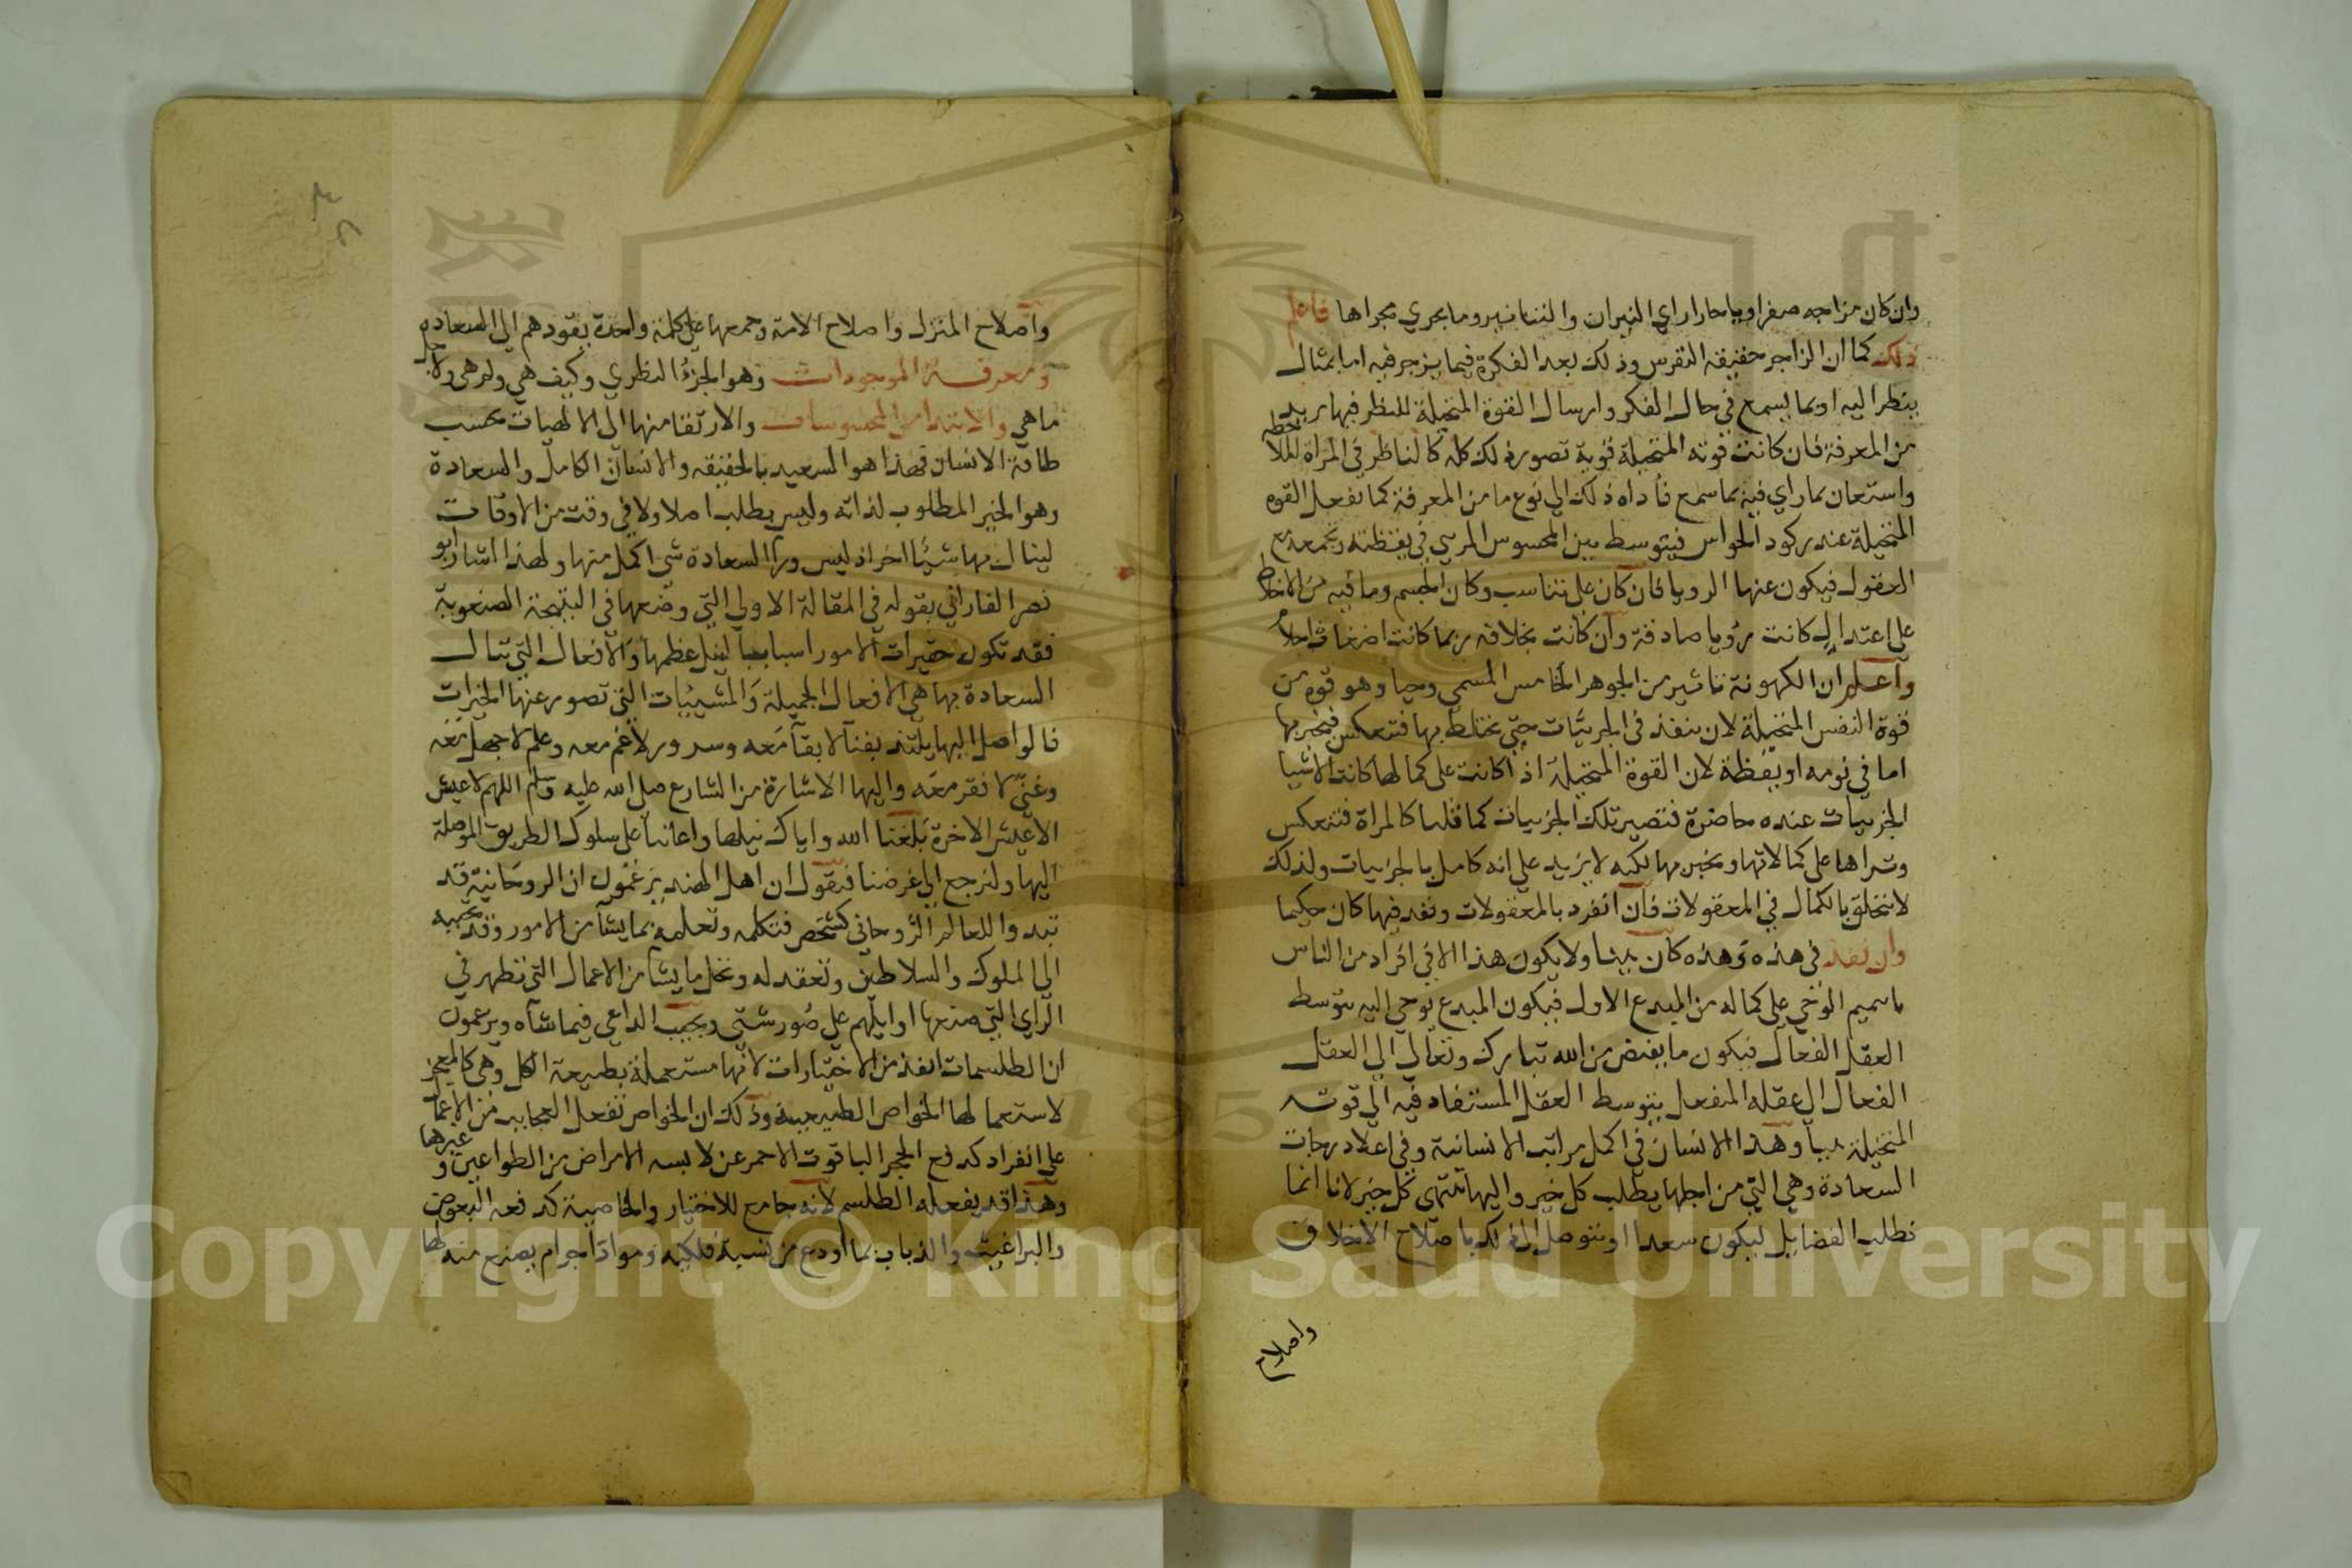 وان كان مزاجه صفراويا حارا راي النيران والتنانير وما يجري مجراها فاعلم
ذلك كما ان الزاجر حقيقه التفرس وذلك بعد الفكرة فيما يزجر فيه اما بمثال
ينظر اليه او بما يسمع في حال الفكر وارسال القوة المتخيلة للنظر فيها يريد
من المعرفة فان كانت قوته المتخيلة قوية تصور ذلك كله كالناظر في المراة للملاحظه
واستعان بما راي فيه بما سمع فاداه ذلك الي نوع ما من المعرفة كما تفعل القوه
المتخيلة عند ركود الحواس فيتوسط بين المحسوس المرسي في يقظته وتجمعه مع
العقول فيكون عنها الرويا فان كان علي تناسب وكان الجسم وما فيه من الاخلاط
علي اعتدال كانت رؤيا صادقة وان كانت بخلافه ربما كانت اضغاث احلام
واعلم ان الكهونة تاثير من الجوهر الخامس المسمي وحيا وهو قوه من
قوة النفس المتخيلة لان ينفذ في الجزئيات حتي يختلط بها فتنعكس فيخبر بها
اما في نومه او يقظة لان القوة المتخيلة اذا كانت علي كمالها كانت الاشيا
الجزييات عنده حاضرة فتصير تلك الجزييات كما قلنا كالمراة فتنعكس
وتراها علي كمالاتها ويخبر بها لكنه لا يزيد علي انه كامل بالجزييات ولذلك
لا يتخلق بالكمال في المعقولات فان انفرد بالمعقولات ونفد فيها كان حكيما
وان نفذ في هذه وهذه كان نبيا ولا يكون هذا الا في افراد من الناس
ما سميم الوحي علي كماله من المبدع الاول فيكون المبدع يوحي اليه بتوسط
العقل الفعال فيكون ما يفيض من الله تبارك وتعالي الي العقل
الفعال الي عقله المنفعل بتوسط العقل المستفاد فيه الي قوته
المتخيلة نبيا وهذا الانسان في اكمل مراتب الانسانية وفي اعلا درجات
السعادة وهي التي من اجلها يطلب كل خير واليها ينتهي كل خير لانا انما
نطلب الفضايل ليكون سعدا او نتوصل الي ذلك باصلاح الاخلاق
واصلاح
واصلاح المنزل واصلاح الامة وجمعها علي كلمة واحدة يقودهم الي السعاده
ومعرفة الموجودات وهو الجزؤ النظري وكيف هي ولم هي ولاجل
ما هي والابتدا من المحسوسات والارتقا منها الي الالهيات بحسب
طاقة الانسان فهذا هو السعيد بالحقيقه والانسان الكامل والسعادة
وهو الخير المطلوب لذاته وليس يطلب اصلا ولا في وقت من الاوقات
لينال بها شيئا اخر اذ ليس ورا السعادة شي اكمل منها ولهذا اشار ابو
نصر الفارابي بقوله في المقالة الاولي التي وضعها في النتيجة الصنعوية
فقد تكون حقيرات الامور اسبابا لنيل عظمها والافعال التي تنال
السعادة بها هي الافعال الجميلة والمشيئات التي تصور عنها الخيرات
فالواصل اليها يلتذ بفنا لا بقا معه وسرور لا غم معه وعلم لا جهل معه
وغني لا فقر معه واليها الاشارة من الشارع صلي الله عليه وسلم اللهم لا عيش
الا عيش الاخرة بلغنا الله واياك نيلها واعاننا علي سلوك الطريق الموصلة
اليها ولنرجع الي غرضنا فنقول ان اهل الهند يزعمون ان الروحانية قد
تبدوا للعالم الروحاني كشخص فتكلمه وتعلمه بما يشا من الامور وقد تحببه
الي الملوك والسلاطين وتعقد له وتحل ما يشا من الاعمال التي تظهر في
الراي التي صنعها اوايلهم علي صور شتي ويجيب الداعي فيما شاه ويزعمون
ان الطلسمات انفذ من الاختيارات لانها مستعملة بطبيعة الكل وهي كالمعجز
لاستعمالها الخواص الطبيعية وذلك ان الخواص تفعل العجايب من الاعمال
علي انفراد كدفع الحجر الياقوت الاحمر عن لابسه الامراض من الطواعين وغيرها
وهذا قد يفعله الطلسم لانه جامع للاختيار والخاصية كدفعه البعوض
والبراغيث والذباب بما اودع من نسبة فلكيه ومواد اجرام يصنع منه لها
Copyright © King Saud University
1957